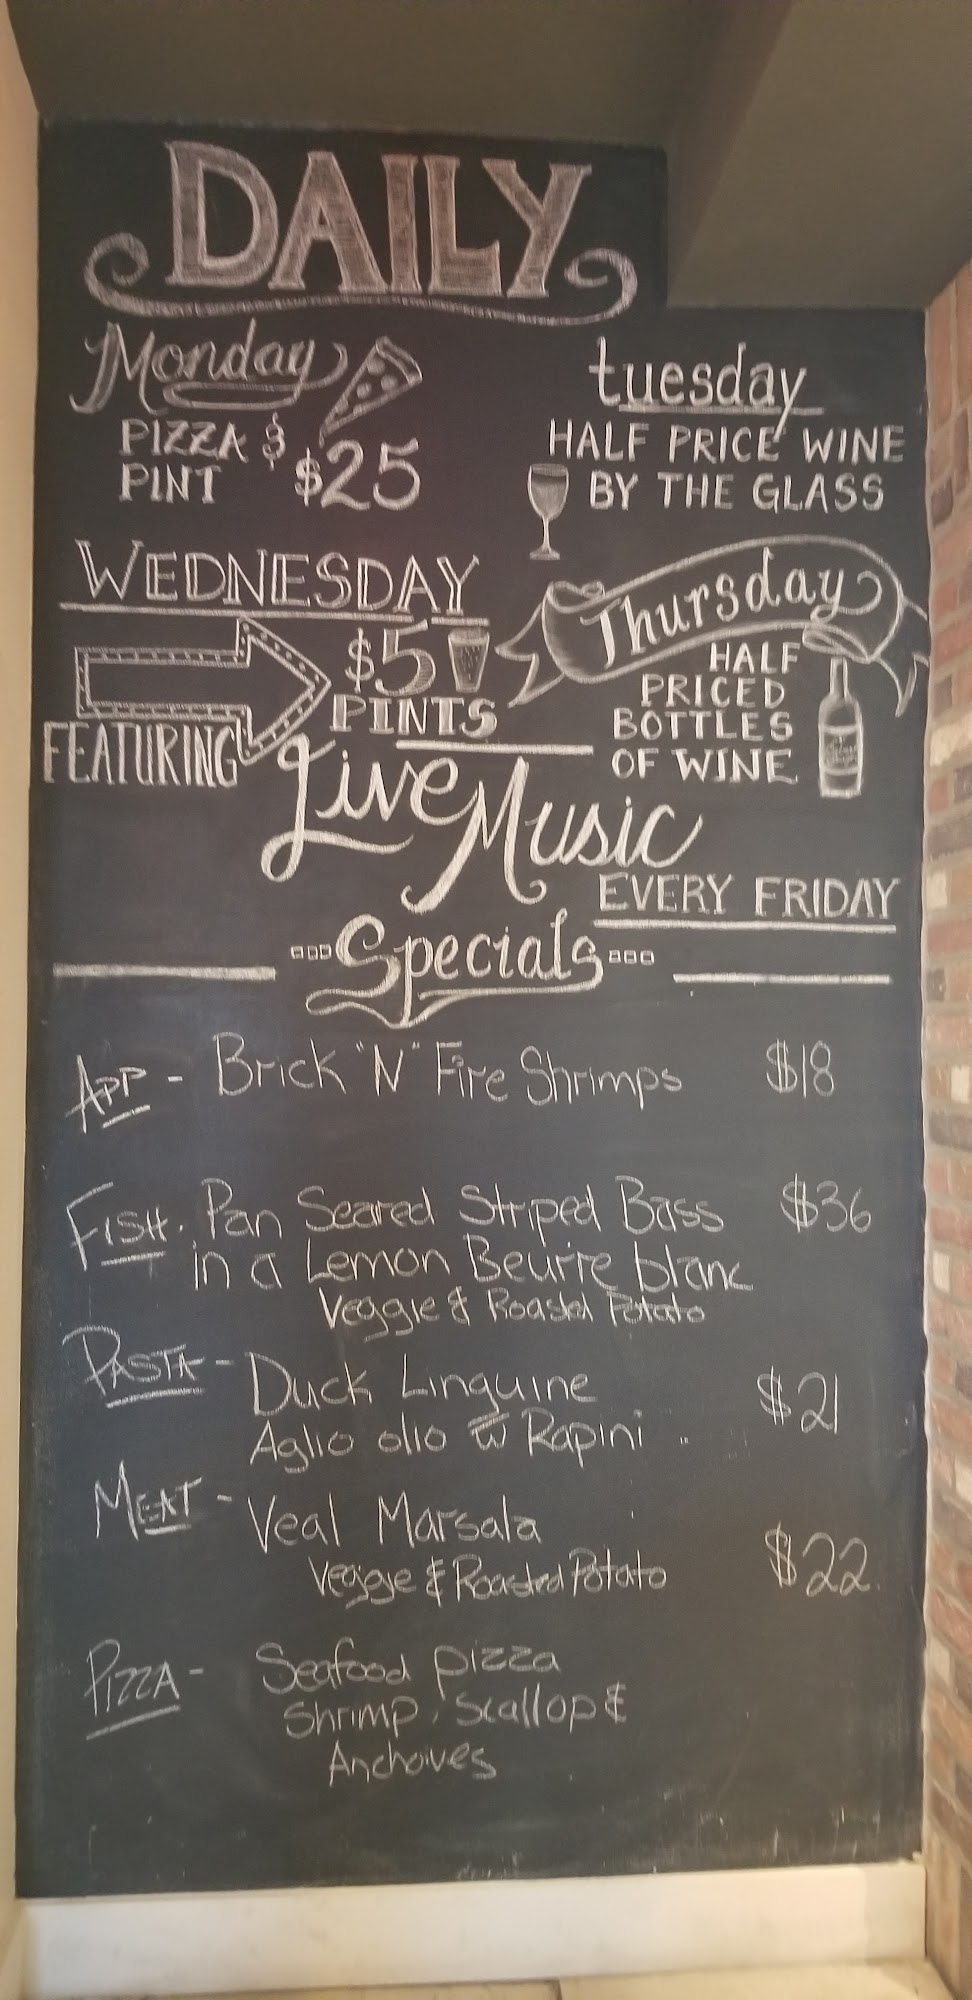 DAILY
Monday
PIZZA &
PINT $25
tuesday
HALF PRICE WINE
BY THE GLASS
WEDNESDAY
$5
PINTS
Thursday
HALF
PRICED
BOTTLES
OF WINE
FEATURING
Live Music
EVERY FRIDAY
Specials
APP - Brick "N" Fire Shrimps $18
FISH. Pan Seared Striped Bass $36
in a Lemon Beurre blanc
Veggie & Roasted Potato
PASTA - Duck Linguine $21
Aglio olio w Rapini
MEAT - Veal Marsala
Veggie & Roasted Potato $22
PIZZA - Seafood pizza
Shrimp, Scallop &
Anchoives